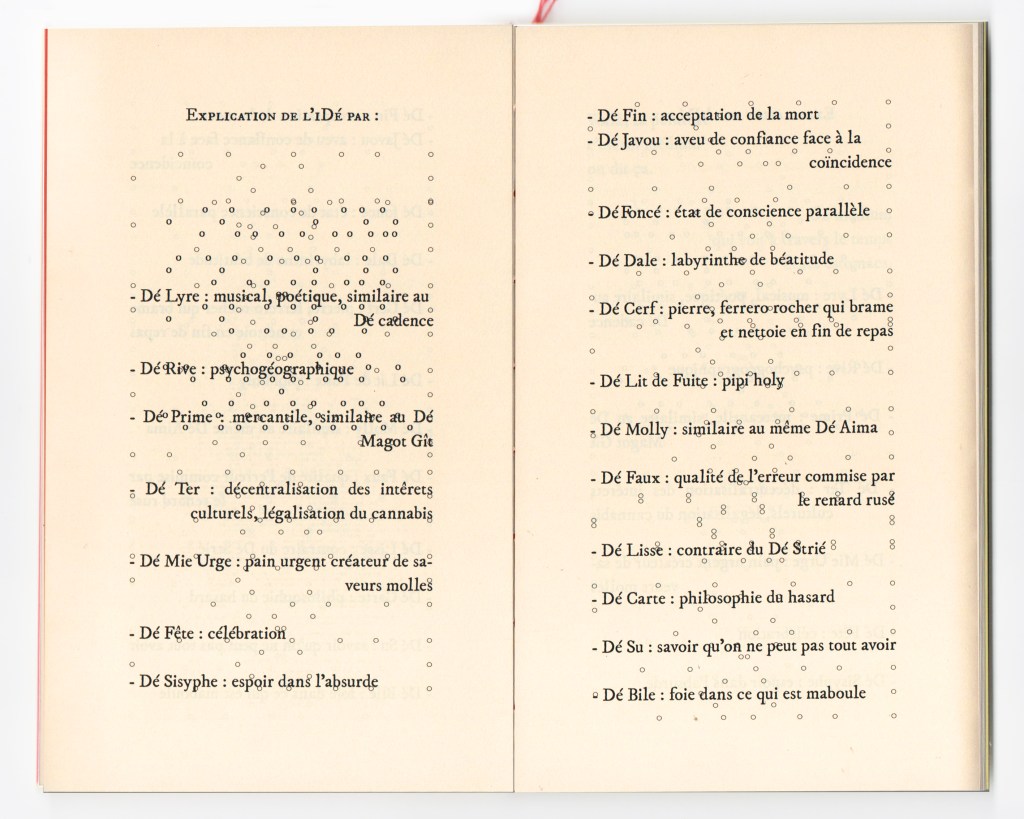 Explication de l'iDé par :
- Dé Lyre : musical, poétique, similaire au
Dé cadence
- Dé Rive : psychogéographique
- Dé Prime : mercantile, similaire au Dé
Magot Gît
- Dé Ter : décentralisation des intérets
culturels, légalisation du cannabis
- Dé Mie Urge : pain urgent créateur de sa-
veurs molles
- Dé Fête : célébration
- Dé Sisyphe : espoir dans l'absurde
- Dé Fin : acceptation de la mort
- Dé Javou : aveu de confiance face à la
coïncidence
- Dé Foncé : état de conscience parallèle
- Dé Dale : labyrinthe de béatitude
- Dé Cerf : pierre, ferrero rocher qui brame
et nettoie en fin de repas
- Dé Lit de Fuite : pipi holy
- Dé Molly : similaire au même Dé Aima
- Dé Faux : qualité de l'erreur commise par
le renard rusé
- Dé Lisse : contraire du Dé Strié
- Dé Carte : philosophie du hasard
- Dé Su : savoir qu'on ne peut pas tout avoir
- Dé Bile : foie dans ce qui est maboule